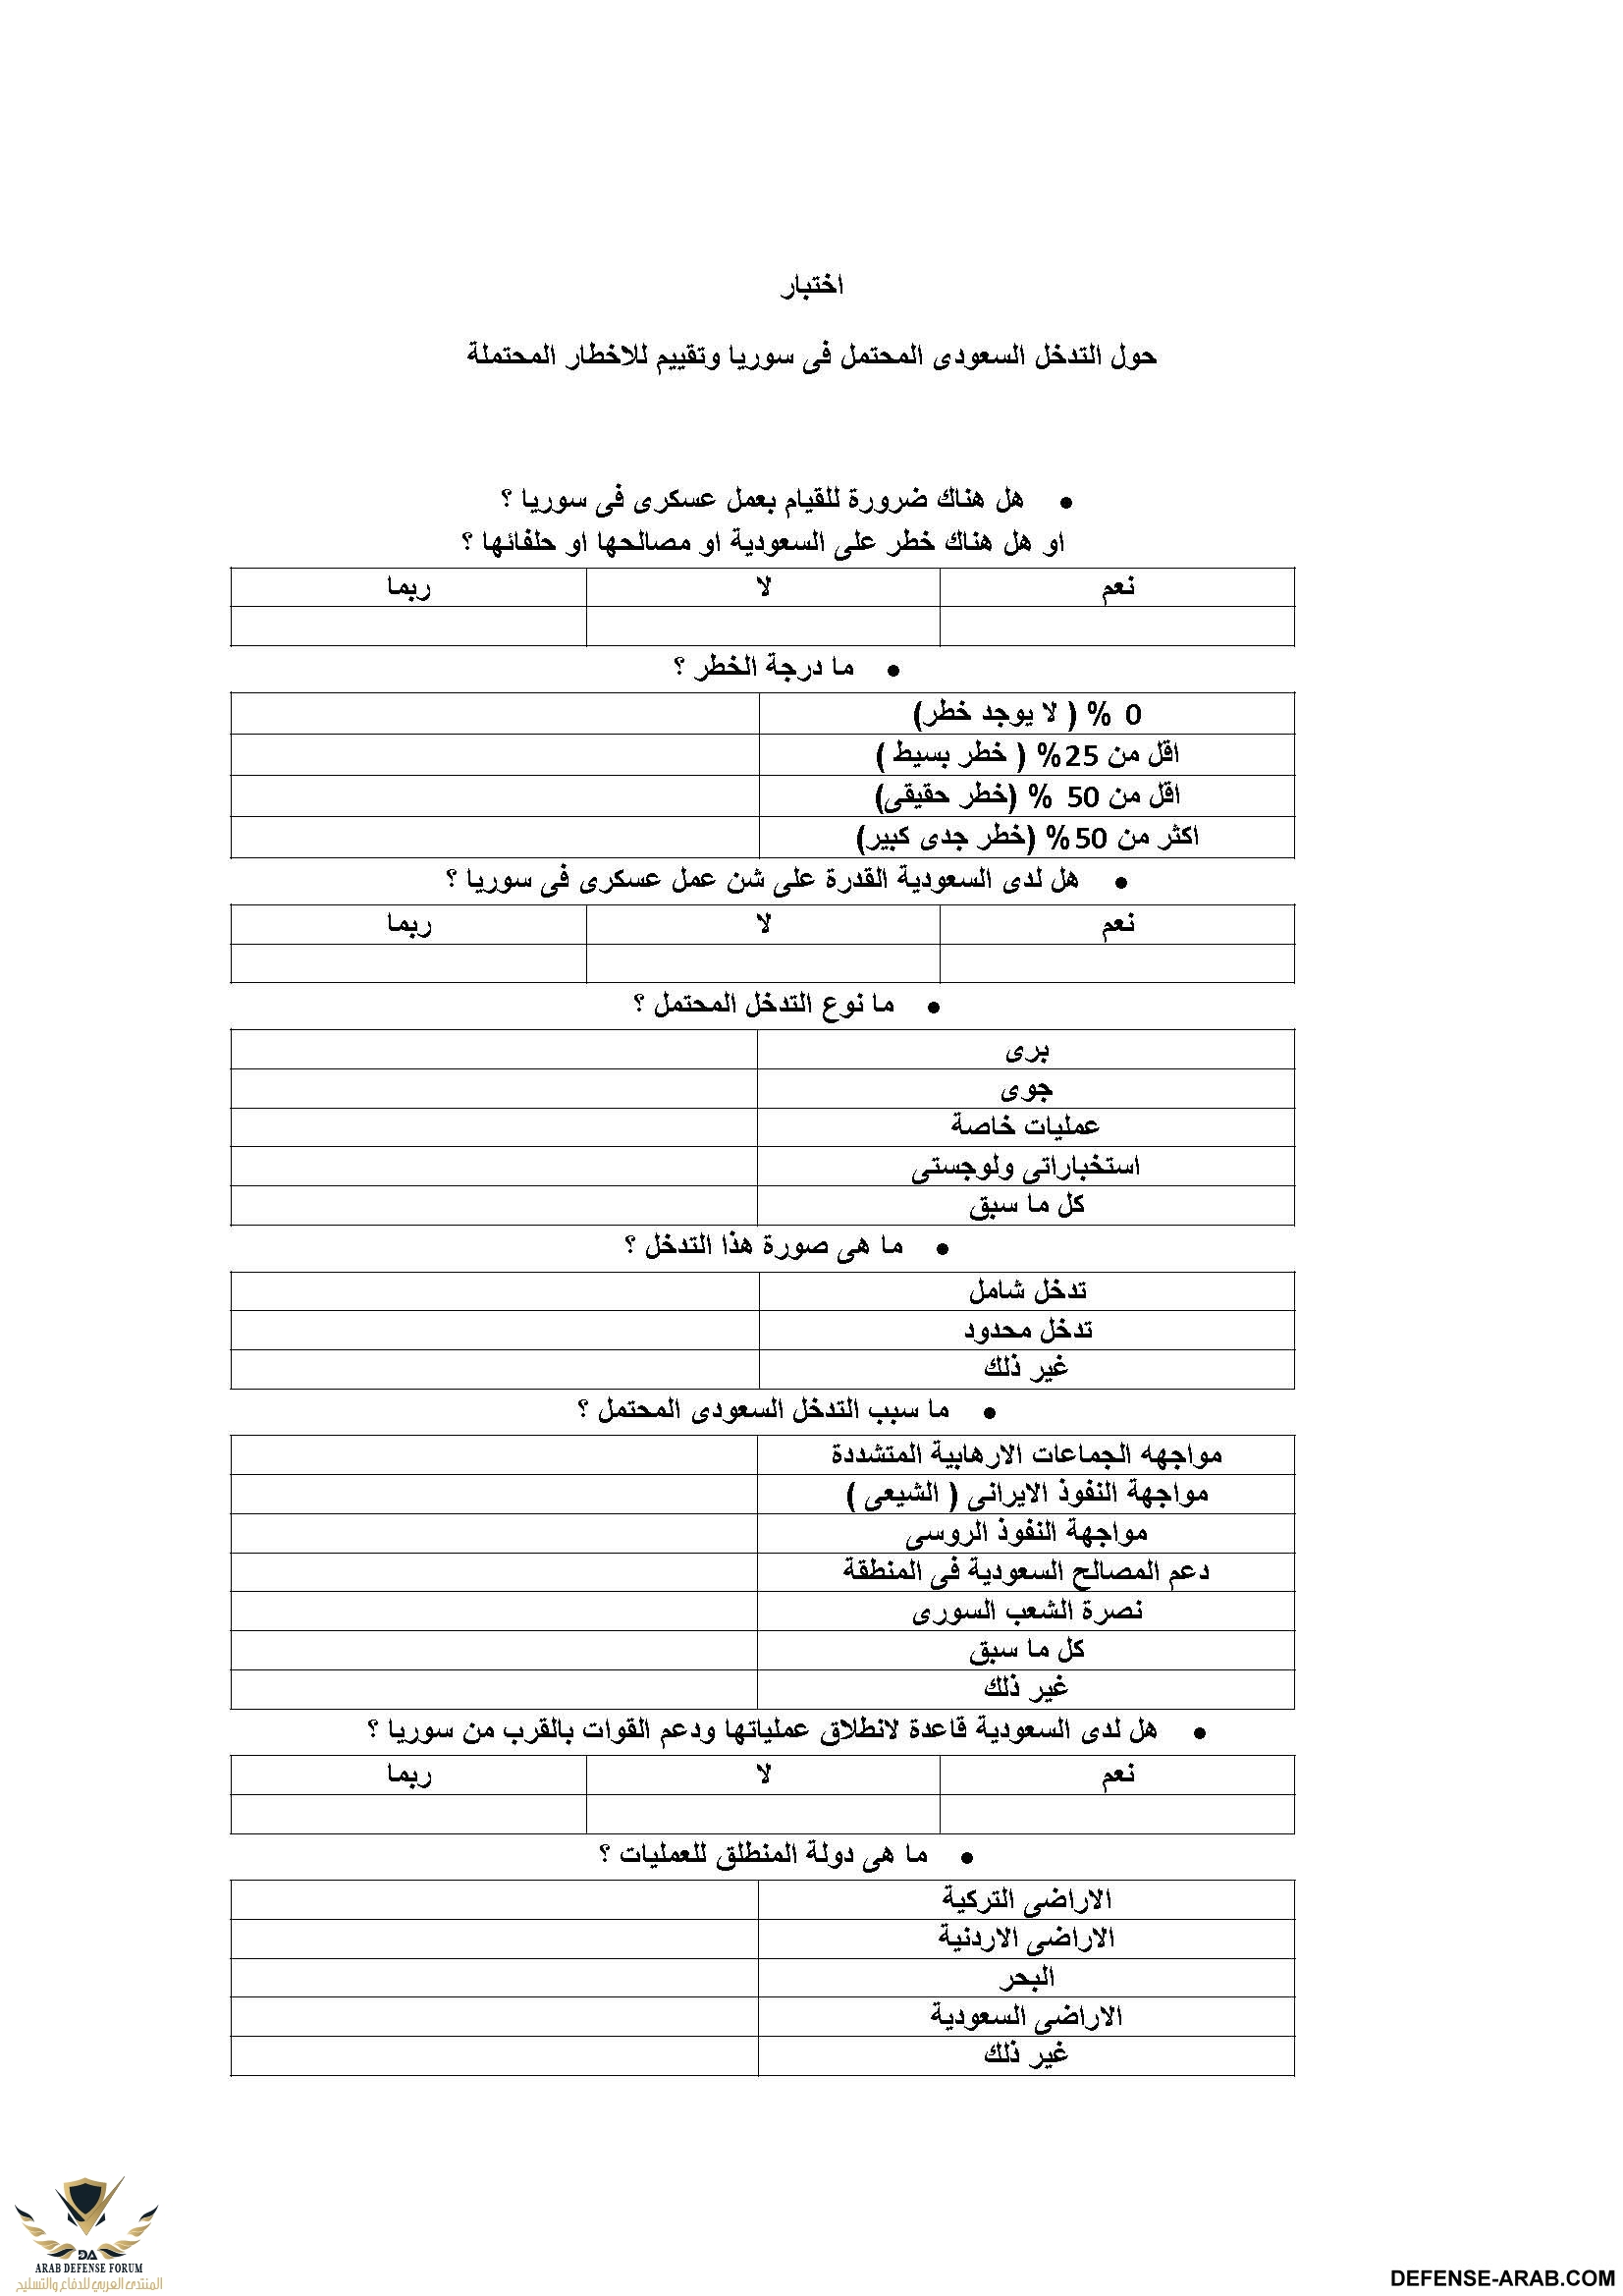 اختبار
حول التدخل السعودى المحتمل فى سوريا وتقييم للاخطار المحتملة
• هل هناك ضرورة للقيام بعمل عسكرى فى سوريا ؟
او هل هناك خطر على السعودية او مصالحها او حلفائها ؟
نعم لا ربما
• ما درجة الخطر ؟
0 % ( لا يوجد خطر)
اقل من 25% ( خطر بسيط )
اقل من 50 % (خطر حقيقى)
اكثر من 50% (خطر جدى كبير)
• هل لدى السعودية القدرة على شن عمل عسكرى فى سوريا ؟
نعم لا ربما
• ما نوع التدخل المحتمل ؟
برى
جوى
عمليات خاصة
استخباراتى ولوجستى
كل ما سبق
• ما هى صورة هذا التدخل ؟
تدخل شامل
تدخل محدود
غير ذلك
• ما سبب التدخل السعودى المحتمل ؟
مواجهه الجماعات الارهابية المتشددة
مواجهة النفوذ الايرانى ( الشيعى )
مواجهة النفوذ الروسى
دعم المصالح السعودية فى المنطقة
نصرة الشعب السورى
كل ما سبق
غير ذلك
• هل لدى السعودية قاعدة لانطلاق عملياتها ودعم القوات بالقرب من سوريا ؟
نعم لا ربما
• ما هى دولة المنطلق للعمليات ؟
الاراضى التركية
الاراضى الاردنية
البحر
الاراضى السعودية
غير ذلك
DA
ARAB DEFENSE FORUM
المنتدى العربي للدفاع والتسليح
DEFENSE-ARAB.COM